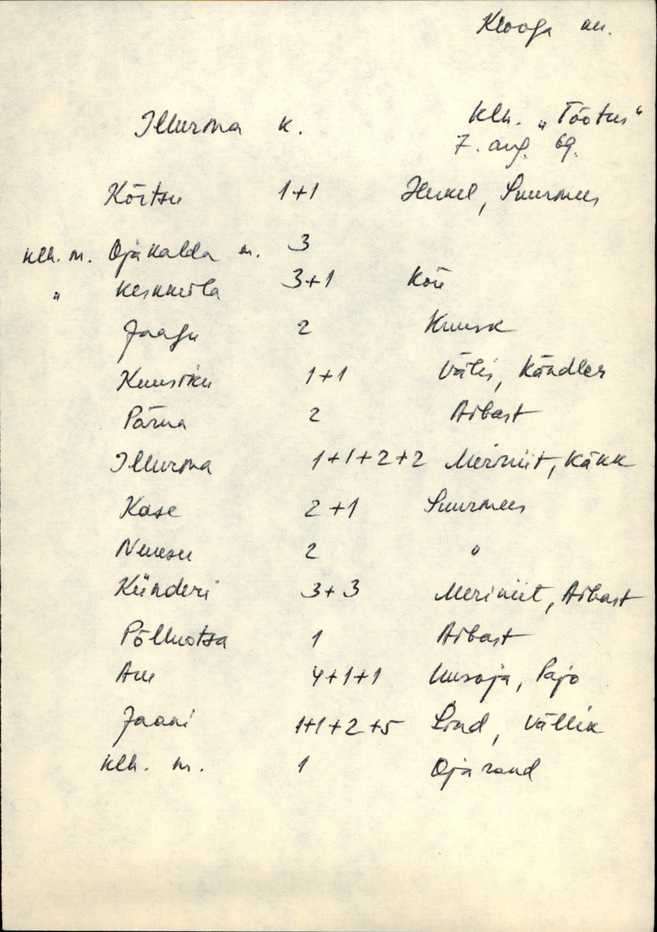 Klooga
Illurma k. Klh. „Töötus"
7. aug. 69.
Kõrtsu 1+1 Henkel, Suurmees
klh. m. Ojakalda m. 3
" Keskküla 3+1 Kõiv
Jaagu 2 Kuusk
Kuusiku 1+1 Välis, Kändler
Pärna 2 Arbast
Illurma 1+1+2+2 Meriniit, Käkk
Kase 2+1 Suurmees
2 "
Künderi 3+3 Meriniit, Arbast
Põlluotsa 1 Arbast
Aru 4+1+1 Uusoja, Pajo
Jaani 1+1+2+5 Lind, Vällik
klh. m. 1 Ojarand